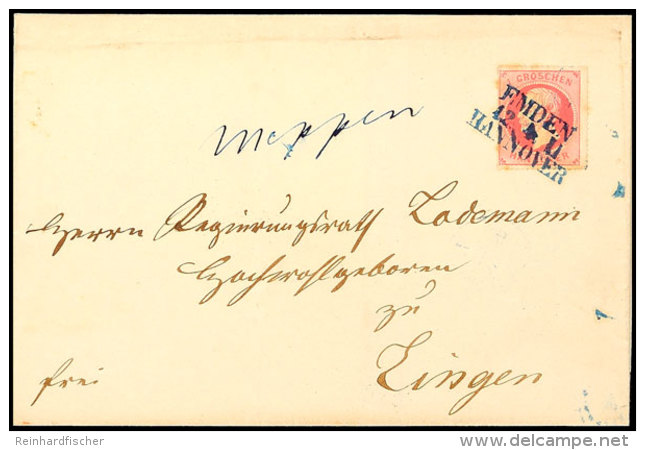 GROSCHEN
EMDEN
12 4 U
HANNOVER
HANNOVER
Meppen
Herrn Regierungsrath Lodemann
Hochwohlgeboren
zu
frei
Lingen
Reinhardfischer
delcampe.net